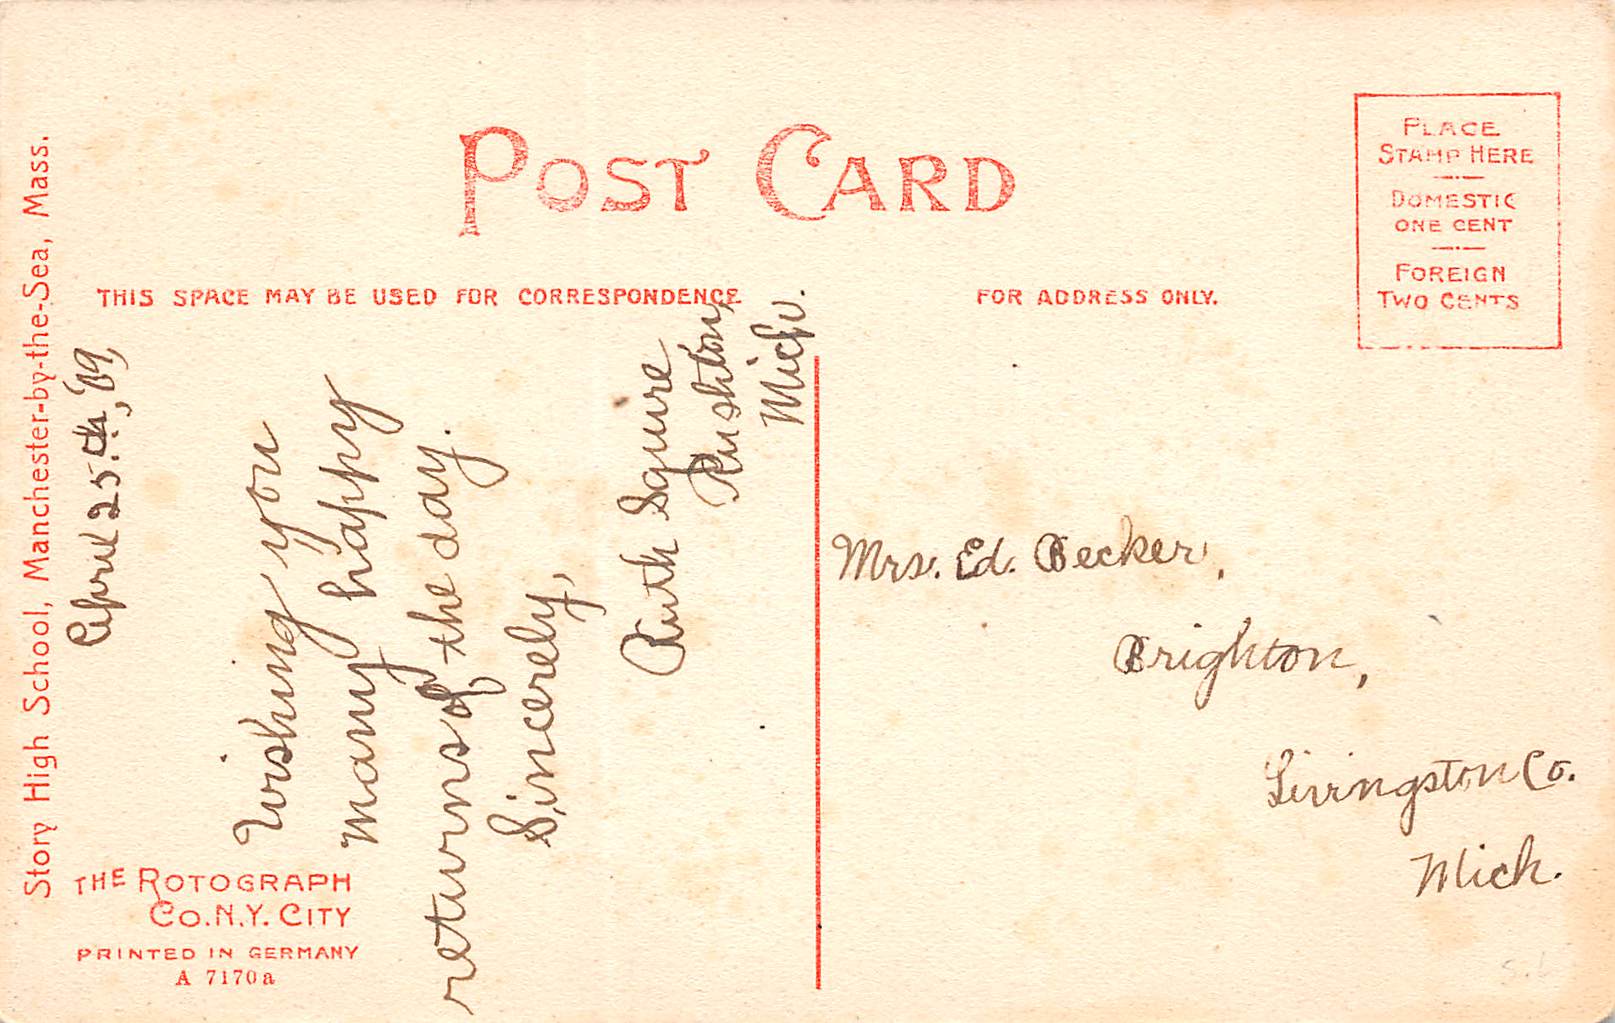 POST CARD
PLACE
STAMP HERE
DOMESTIC
ONE CENT
FOREIGN
TWO CENTS
THIS SPACE MAY BE USED FOR CORRESPONDENCE
FOR ADDRESS ONLY.
Story High School, Manchester-by-the-Sea, Mass.
April 25th, '09,
Wishing you
many happy
returns of the day.
Sincerely,
Ruth Squire
Rushton,
Mich.
Mrs. Ed. Becker,
Brighton,
Livingston Co.
Mich.
THE ROTOGRAPH
CO. N.Y. CITY
PRINTED IN GERMANY
A 7170a